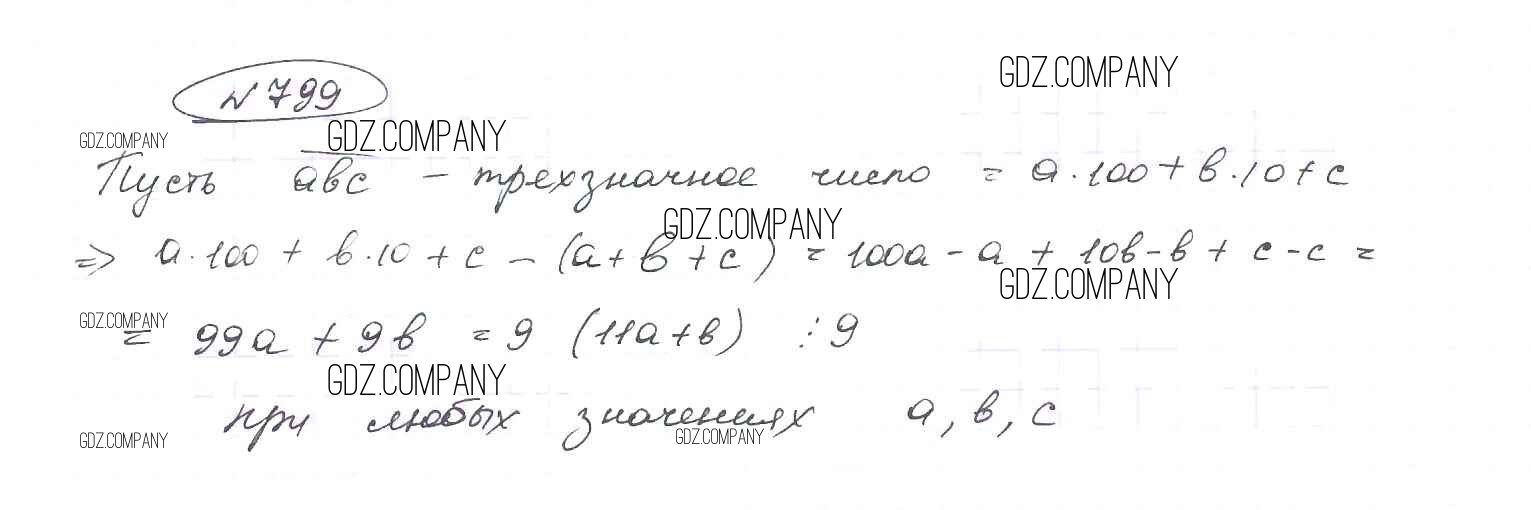 № 799
GDZ.COMPANY
GDZ.COMPANY GDZ.COMPANY
Пусть a̅b̅c̅ – трехзначное число = a·100+b·10+c
GDZ.COMPANY
=> a·100 + b·10 + c – (a+b+c) = 100a – a + 10b – b + c – c =
GDZ.COMPANY
GDZ.COMPANY
= 99a + 9b = 9 (11a+b) ⋮ 9
GDZ.COMPANY
при любых значениях a, b, c
GDZ.COMPANY GDZ.COMPANY